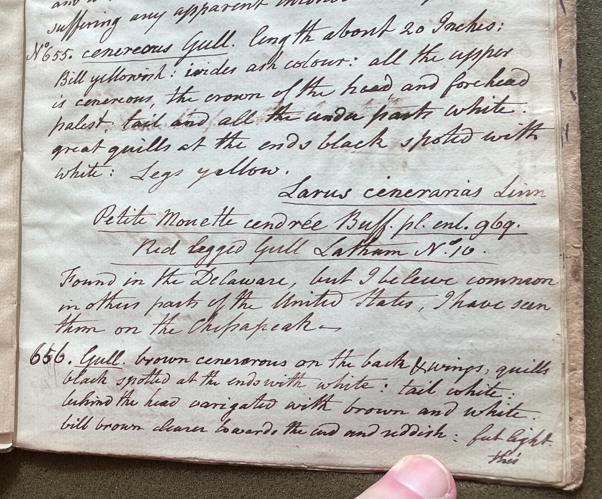 suffering any apparent
No. 655. cenereous Gull. length about 20 Inches:
Bill yellowish: irides ash colour: all the upper
is cenereous, the crown of the head and forehead
palest, tail and all the under parts white.
great quills at the ends black spoted with
white: Legs yellow.
Larus cenerarias Linn
Petite Mouette cendrée Buff. pl. enl. 969.
Red legged Gull Latham No. 10.
Found in the Delaware, but I beleive common
in other parts of the United States, I have seen
them on the Chesapeak
656. Gull. brown cenereous on the back & wings, quills
black spotted at the ends with white: tail white:
behind the head varigated with brown and white.
bill brown clearer towards the end and reddish: feet light.
this